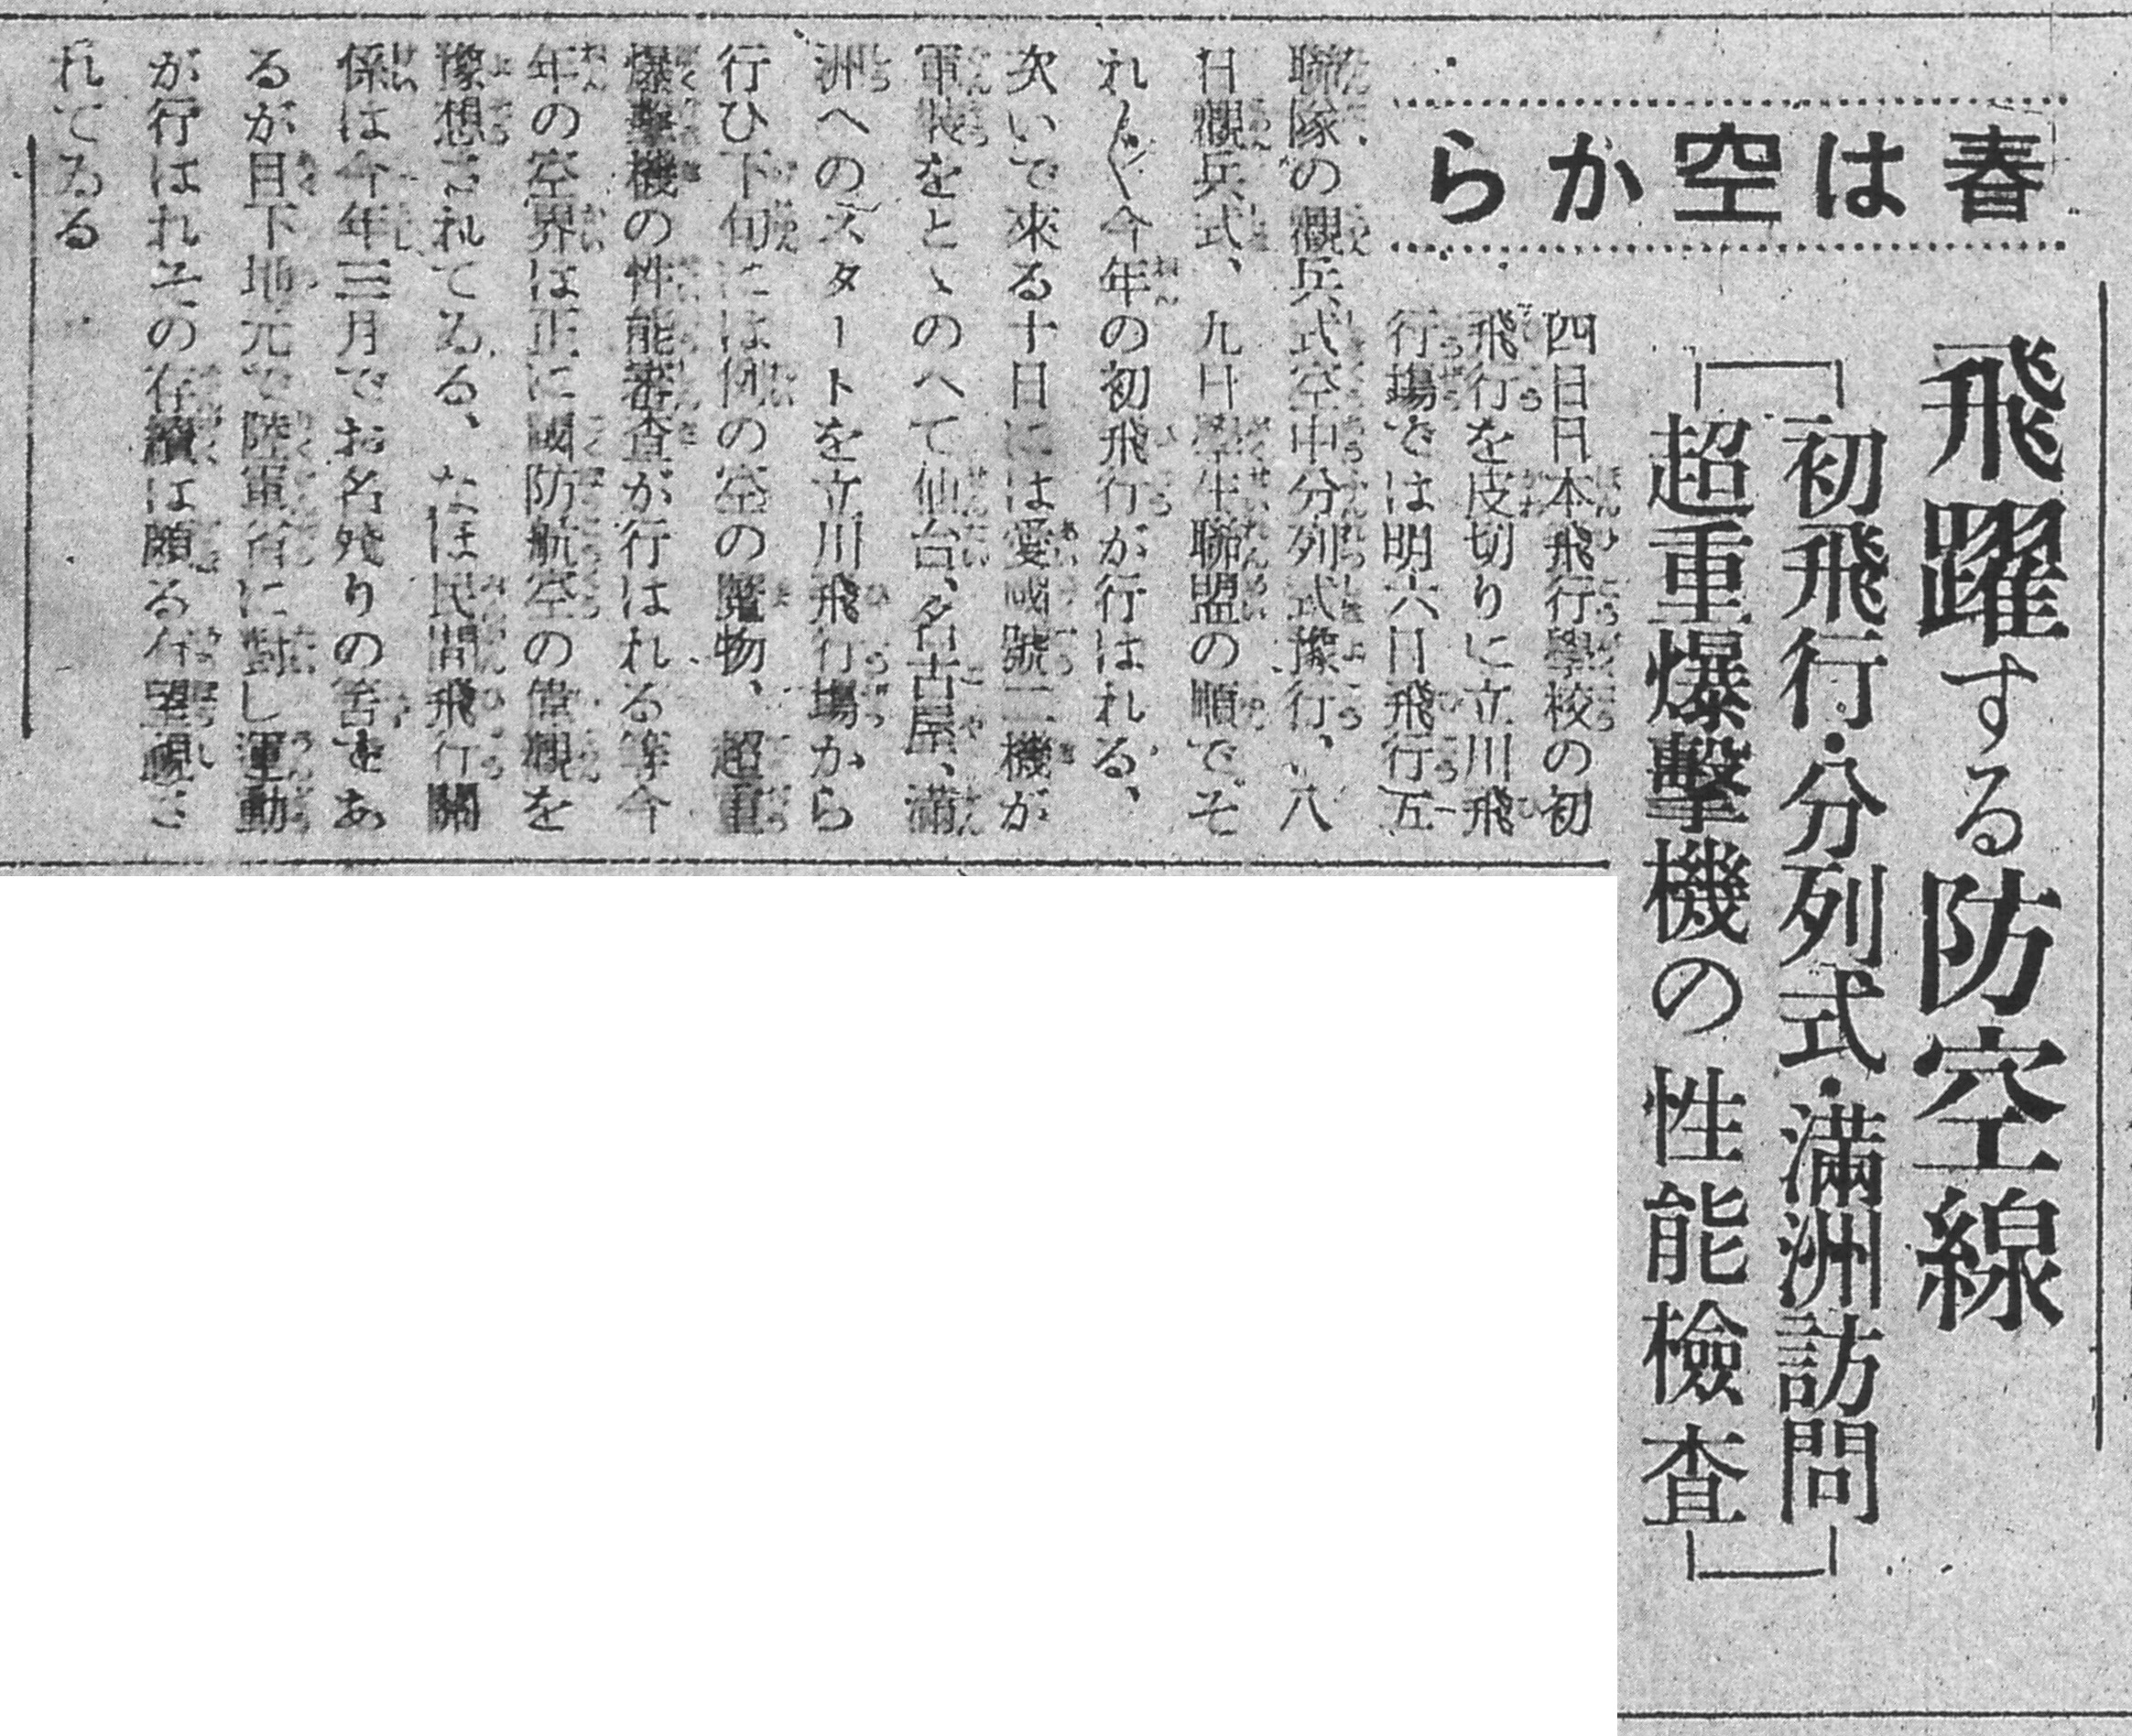 春は空から
飛躍する防空線
初飛行・分列式・滿洲訪問
超重爆擊機の性能檢査
四日日本飛行學校の初
飛行を皮切りに立川飛
行場では明六日飛行五
聯隊の觀兵式空中分列式豫行、八
日觀兵式、九日學生聯盟の順でそ
れ〲今年の初飛行が行はれる、
次いで來る十日には愛國號二機が
軍裝をとゝのへて仙台、名古屋、滿
洲へのスタートを立川飛行場から
行ひ下旬には例の空の魔物、超重
爆擊機の性能審査が行はれる等今
年の空界は正に國防航空の偉觀を
豫想されてゐる、なほ民間飛行關
係は今年三月でお名殘りの筈であ
るが目下地元で陸軍省に對し運動
が行はれその存續は頗る有望視さ
れてゐる